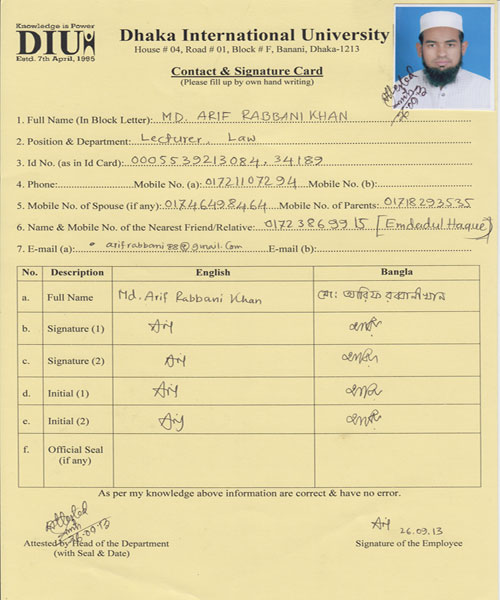 Knowledge is Power
DIU
Estd. 7th April, 1995
Dhaka International University
House # 04, Road # 01, Block # F, Banani, Dhaka-1213
Contact & Signature Card
(Please fill up by own hand writing)
Attested
26.09.13
1. Full Name (In Block Letter): MD. ARIF RABBANI KHAN
2. Position & Department: Lecturer, Law
3. Id No. (as in Id Card): 0005539213084, 34189
4. Phone: Mobile No. (a): 01721107294 Mobile No. (b):
5. Mobile No. of Spouse (if any): 01746498464 Mobile No. of Parents: 01718293535
6. Name & Mobile No. of the Nearest Friend/Relative: 01723869915 [Emdadul Haque]
7. E-mail (a): arifrabbani88@gmail.com E-mail (b):
No. Description English Bangla
a. Full Name Md. Arif Rabbani Khan মো: আরিফ রব্বানী খান
b. Signature (1) Arif
c. Signature (2) Arif
d. Initial (1) Arif
e. Initial (2) Arif
f. Official Seal
(if any)
As per my knowledge above information are correct & have no error.
Attested
26.09.13
Arif 26.09.13
Attested by Head of the Department Signature of the Employee
(with Seal & Date)